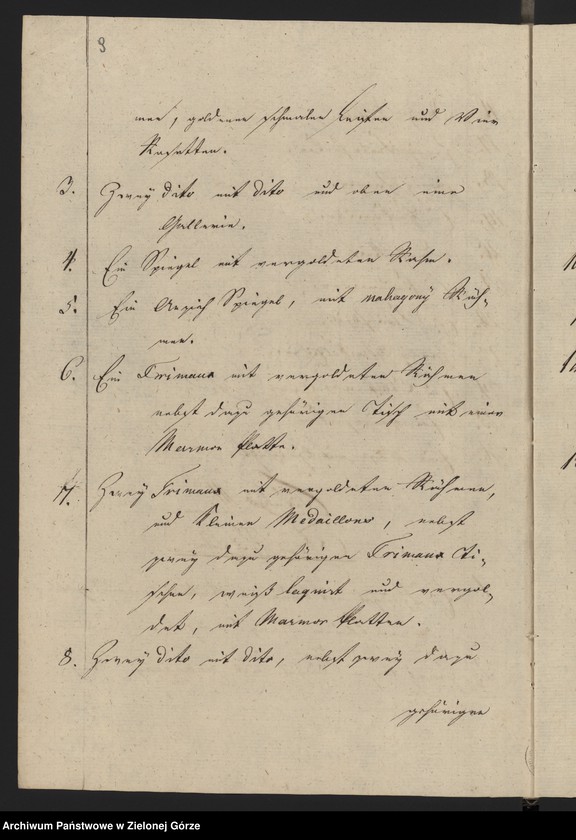 9
men, goldenen schmalen Leisten und Vier
Rosetten.
3. Zwey dito mit dito und oben eine
Gallerie.
4. Ein Spiegel mit vergoldeten Rahm.
5. Ein Anzieh Spiegel, mit mahagony Räh-
men.
6. Ein Trimaux mit vergoldeten Rähmen
nebst dazu gehörigen Tisch mit einer
Marmor Platte.
7. Zwey Trimaux mit vergoldeten Rähmen,
und kleinen Medaillons, nebst
zwey dazu gehörigen Trimaux Ti-
schen, weiß laquirt und vergol-
det, mit Marmor Platten.
8. Zwey dito mit dito, nebst zwey dazu
gehörigen
Archiwum Państwowe w Zielonej Górze